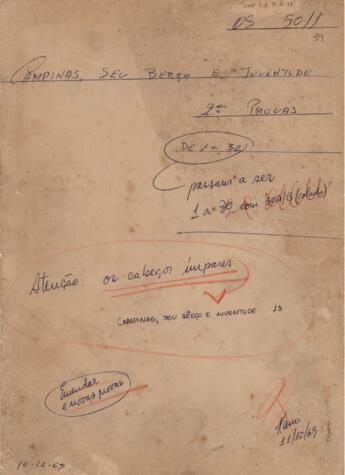 OS 5011
39
CAMPINAS, SEU BERÇO E JUVENTUDE
2as PROVAS
DE 1 a 32
passam a ser
1 a 30 com
Atenção: os cabeços ímpares
CAMPINAS, SEU BERÇO E JUVENTUDE 13
Emendar
e novas provas
11/12/69
10-12-69